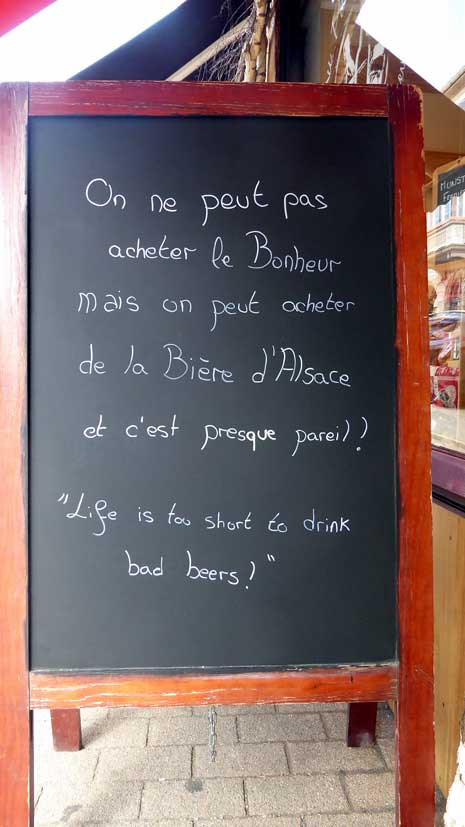 On ne peut pas
acheter le Bonheur
mais on peut acheter
de la Bière d'Alsace
et c'est presque pareil !
"Life is too short to drink
bad beers ! "